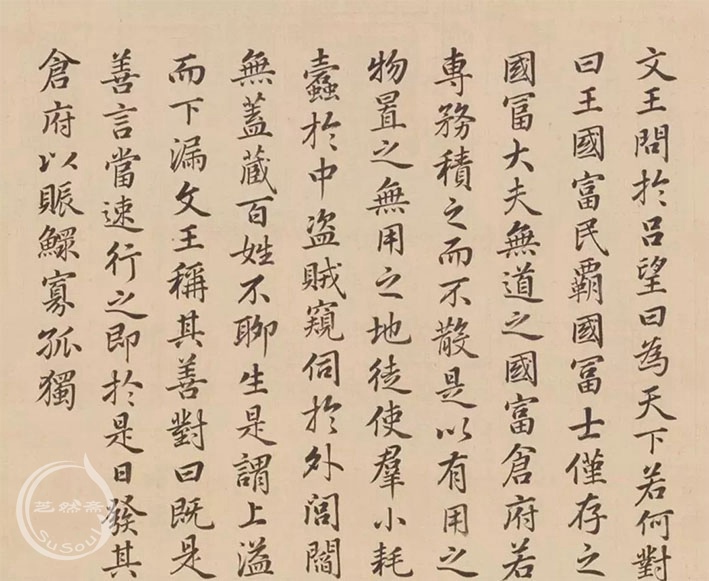 文王問於呂望曰為天下若何對
曰王國富民霸國冨士僅存之
國冨大夫無道之國富倉府若
專務積之而不散是以有用之
物置之無用之地徒使羣小耗
蠹於中盜賊窺伺於外閭閻
無蓋藏百姓不聊生是謂上溢
而下漏文王稱其善對曰既是
善言當速行之即於是日發其
倉府以賑鰥寡孤獨
芝然斋
SuSoul